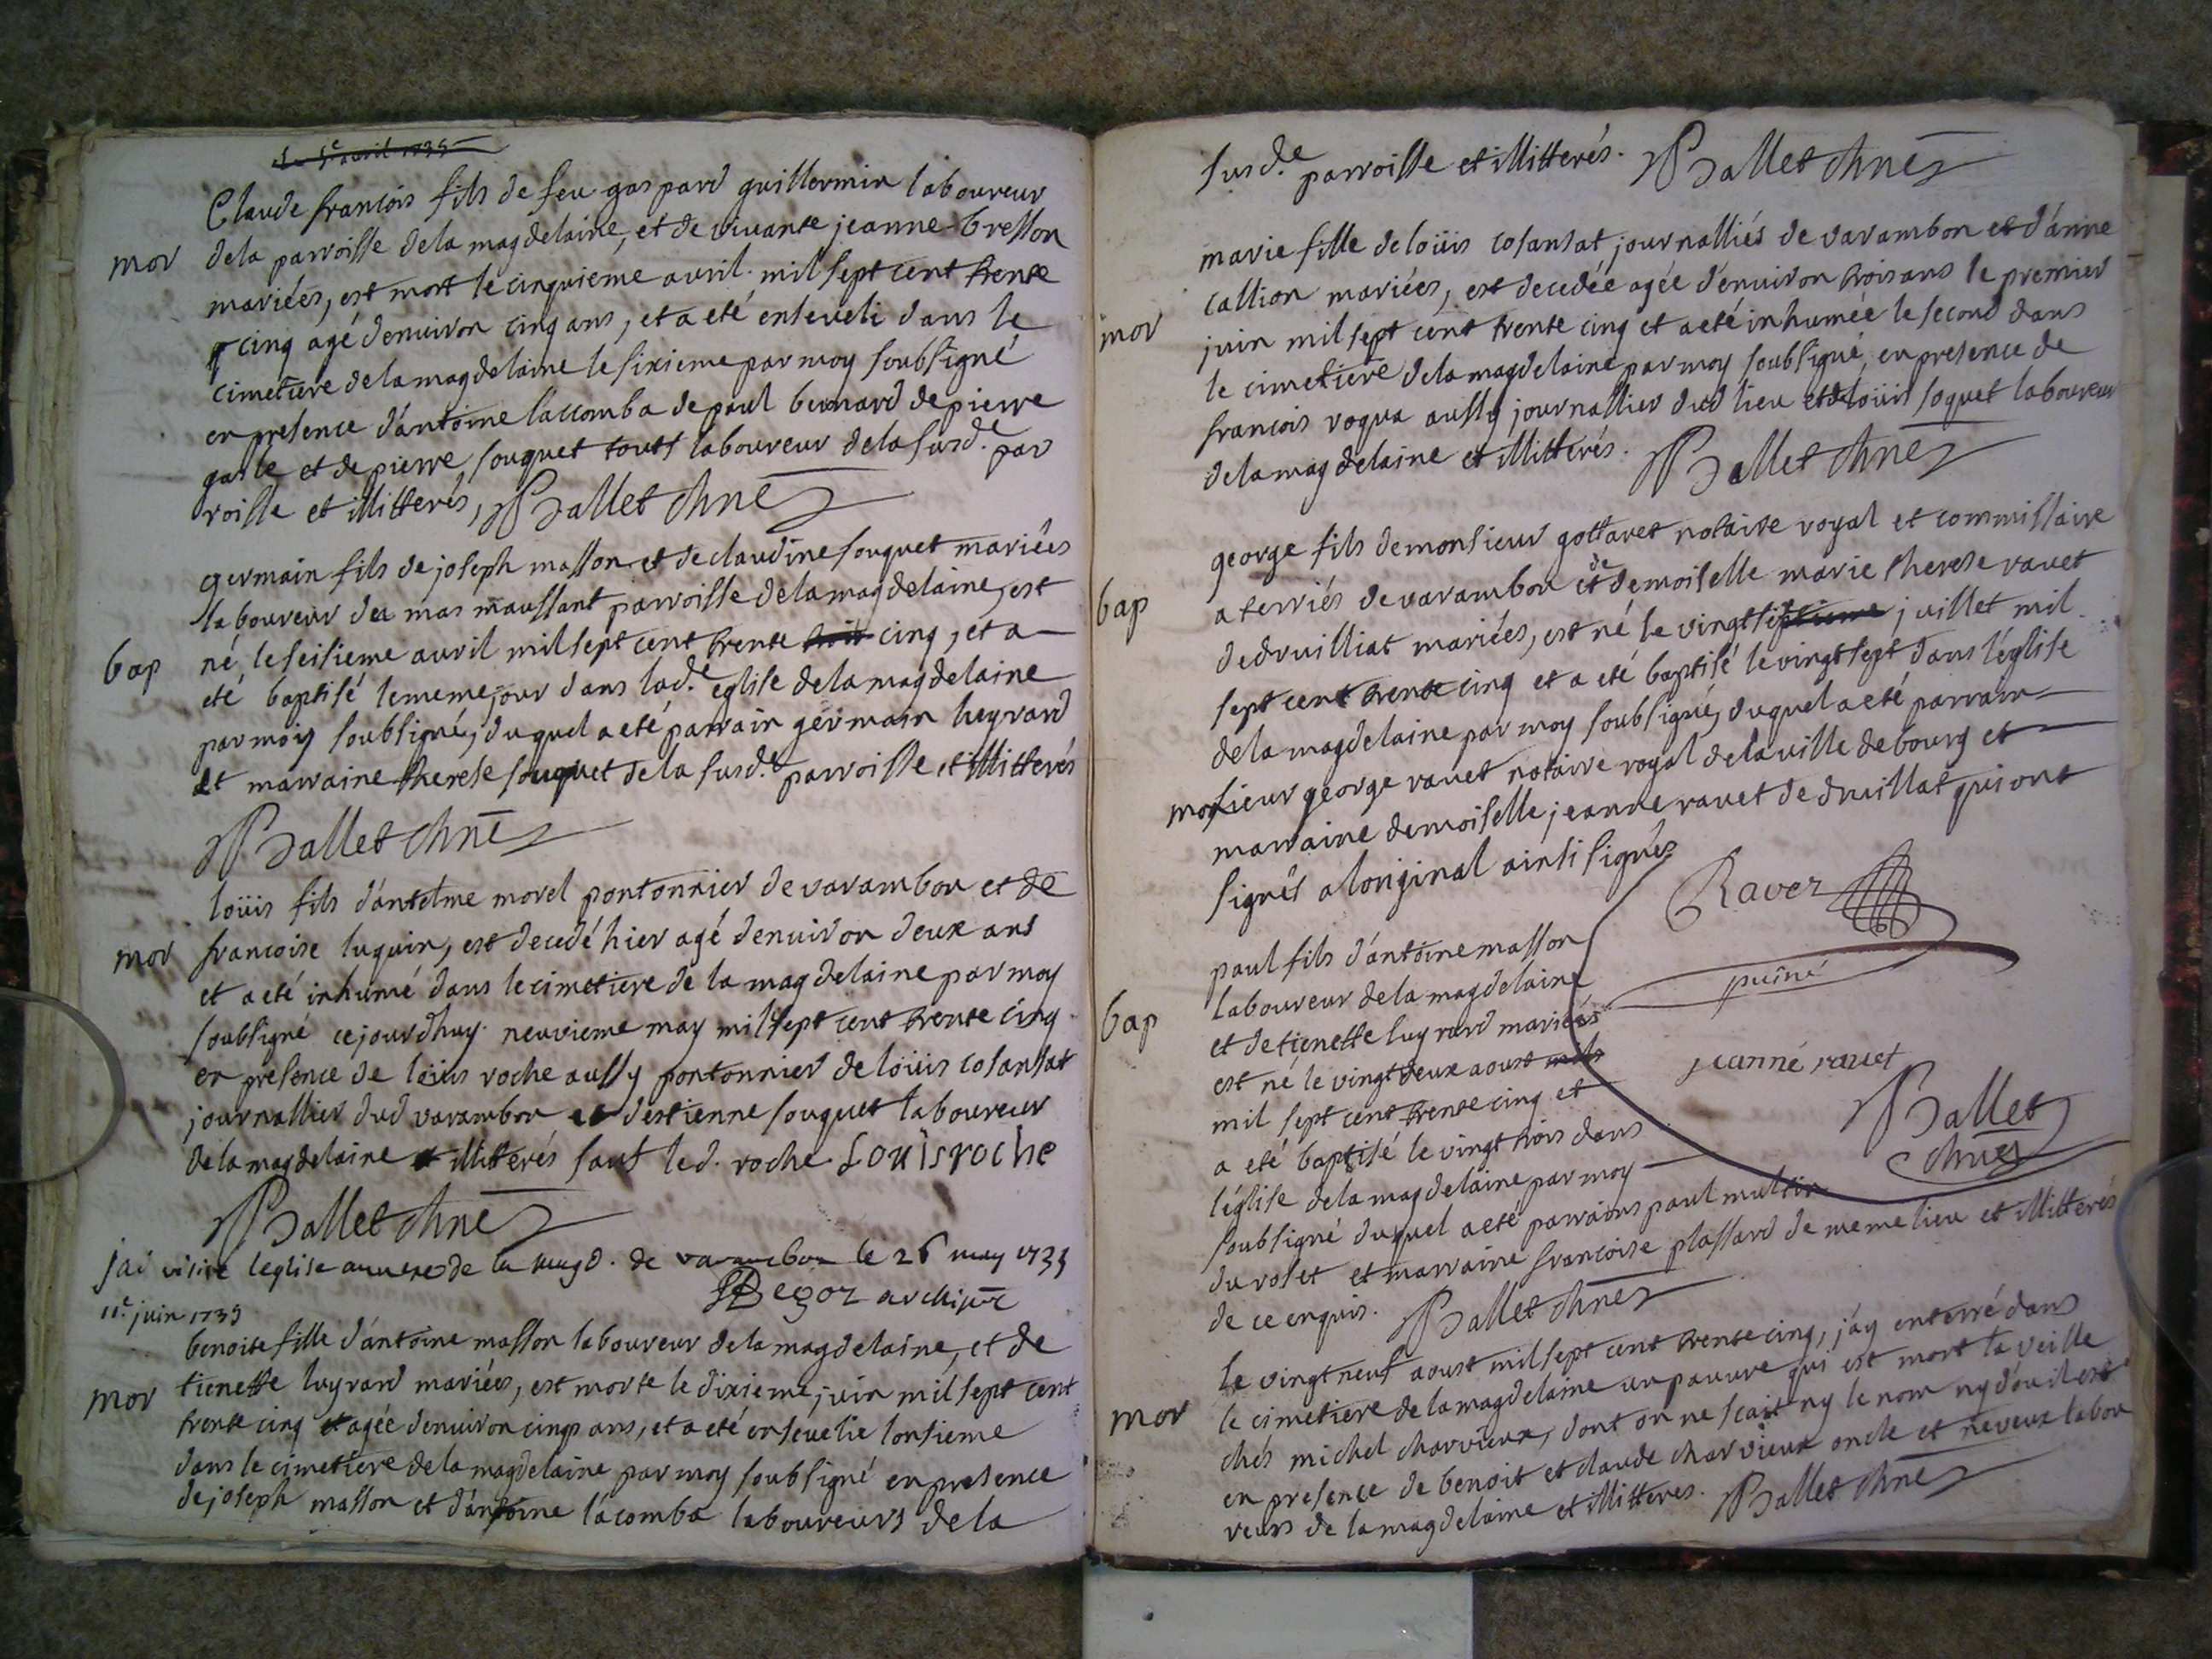 Le 5e avril 1735
Claude francois fils de feu gaspard guillermin laboureur
mor dela parroisse dela magdelaine, et de vivante jeanne bresson
mariées, est mort le cinquieme avril mil sept cent trente
cinq agé denuiron cinq ans, et a eté enseveli dans le
cimetiere dela magdelaine le sixieme par moy soubsigné
en presence d'antoine laccomba de paul bernard de pierre
et de pierre souquet touts laboureur dela susd.e par
roisse et illitterés, Ballet chne
germain fils de joseph masson et de claudine souquet mariées
laboureur du mas maussant parroisse dela magdelaine, est
bap né le seisieme avril mil sept cent trente cinq, et a
eté baptisé le meme jour dans lad.e eglise dela magdelaine
par moy soubsigné, duquel a eté parrain germain luyrard
et marraine therese souquet dela susd.e parroisse et illitterés
Ballet chne
loüis fils d'antelme morel pontonnier de varambon et de
mor francoise luquin, est decedé hier agé denuiron deux ans
et a eté inhumé dans le cimetiere de la magdelaine par moy
soubsigné cejourdhuy neuvieme may mil sept cent trente cinq
en presence de loüis roche aussy pontonnier de loüis cosansat
journallier dud varambon et destienne souquet laboureur
dela magdelaine et illiterés sauf led. roche Louis roche
Ballet chne
jai visité leglise annexe de la magd. de varambon le 26 may 1735
Begoz archipre
11e juin 1735
benoite fille d'antoine masson laboureur dela magdelaine, et de
mor tienette luyrard mariées, est morte le dixieme juin mil sept cent
trente cinq et agée denuiron cinq ans, et a eté ensevelie lonsieme
dans le cimetiere dela magdelaine par moy soubsigné en presence
de joseph masson et d'antoine lacomba laboureurs dela
susd.e parroisse et illitterés. Ballet chne
marie fille de loüis cosansat journalliés de varambon et d'anne
callion mariées, est decedée agée d'enuiron trois ans le premier
mor juin mil sept cent trente cinq et a eté inhumée le second dans
le cimetiere dela magdelaine par moy soubsigné, en presence de
francois roqua aussy journallier dud lieu et de loüis soquet laboureur
dela magdelaine et illitterés. Ballet chne
george fils de monsieur gottaret notaire royal et commissaire
bap a terriés de varambon et de demoiselle marie therese ravet
de druilliat mariées, est né le vingtsix juillet mil
sept cent trente cinq et a eté baptisé le vingtsept dans léglise
dela magdelaine par moy soubsigné, duquel a eté parrain
monsieur george ravet notaire royal dela ville de bourg et
marraine demoiselle jeanne ravet de druillat qui ont
signés a loriginal ainsi signés
Ravet
puiné
jeanne ravet
Ballet
chne
paul fils d'antoine masson
laboureur dela magdelaine
bap et de tienette luyrard mariées
est né le vingt deux aoust
mil sept cent trente cinq et
a eté baptisé le vingt trois dans
léglise dela magdelaine par moy
soubsigné duquel a eté parrains paul multin
du roset et marraine francoise plassard de meme lieu et illitterés
de ce enquis. Ballet chne
le vingt neuf aoust mil sept cent trente cinq, j'ay enterré dans
le cimetiere dela magdelaine un pauvre qui est mort la veille
mor chés michel charvieux, dont on ne scait ny le nom ny d'où il est
en presence de benoit et claude charvieux oncle et neveux labou
reurs de la magdelaine et illitteres. Ballet chne